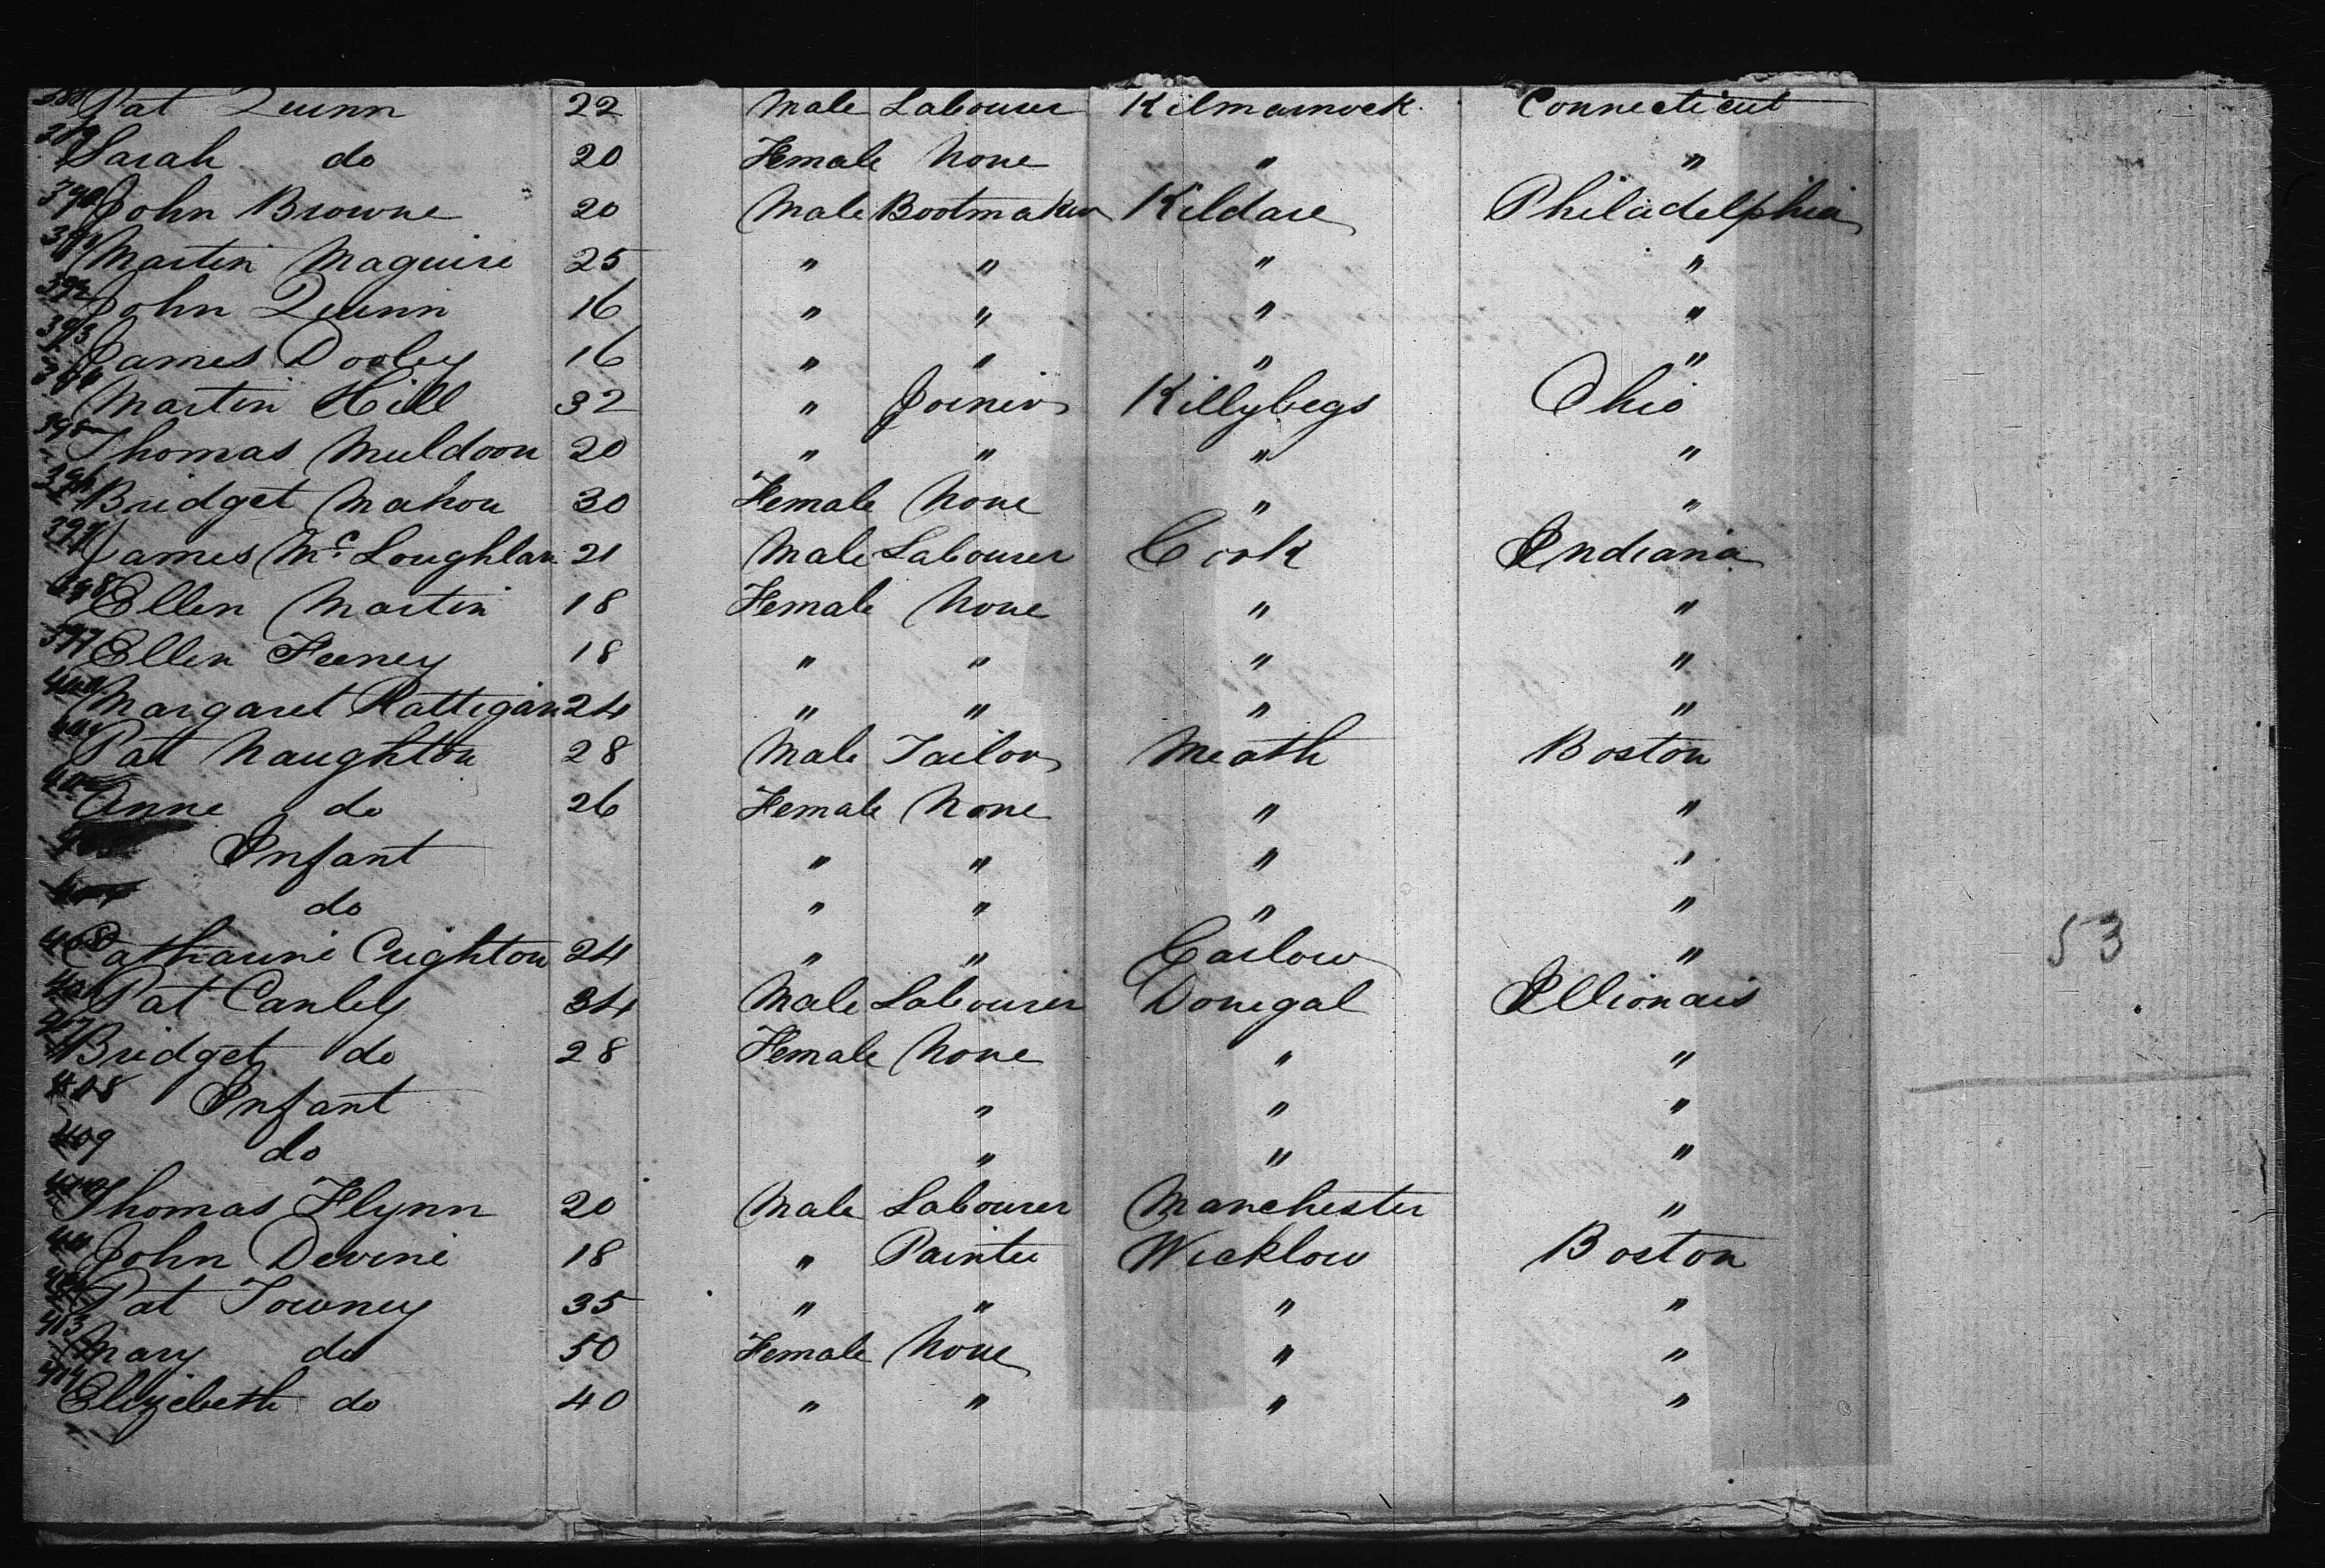 388 Pat Quinn 22 Male Labourer Kilmarnock Connecticut
389 Sarah do 20 Female None " "
390 John Browne 20 Male Bootmaker Kildare Philadelphia
391 Martin Maguire 25 " " " "
392 John Quinn 16 " " " "
393 James Dooley 16 " " " "
394 Martin Hill 32 " Joiner Killybegs Ohio
395 Thomas Muldoon 20 " " " "
396 Bridget Mahon 30 Female None " "
397 James Mc Loughlan 21 Male Labourer Cork Indiana
398 Ellen Martin 18 Female None " "
399 Ellen Feeney 18 " " " "
400 Margaret Rattigan 24 " " " "
401 Pat Naughton 28 Male Tailor Meath Boston
402 Anne do 26 Female None " "
403 Infant " " " "
404 do " " " "
405 Catharine Crighton 24 " " Carlow "
406 Pat Canley 34 Male Labourer Donegal Illionais
407 Bridget do 28 Female None " "
408 Infant " " "
409 do " " "
410 Thomas Flynn 20 Male Labourer Manchester "
411 John Devine 18 " Painter Wicklow Boston
412 Pat Towney 35 " " " "
413 Mary do 50 Female None " "
414 Elizebeth do 40 " " " "
53